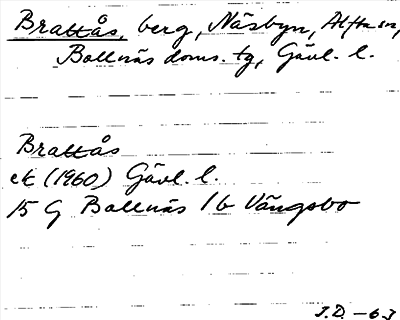 Brattås, berg, Näsbyn, Alfta sn,
Bollnäs doms. tg, Gävl. l.
Brattås
ek (1960) Gävl. l.
15 G Bollnäs 1b Vängsbo
J.D. -63